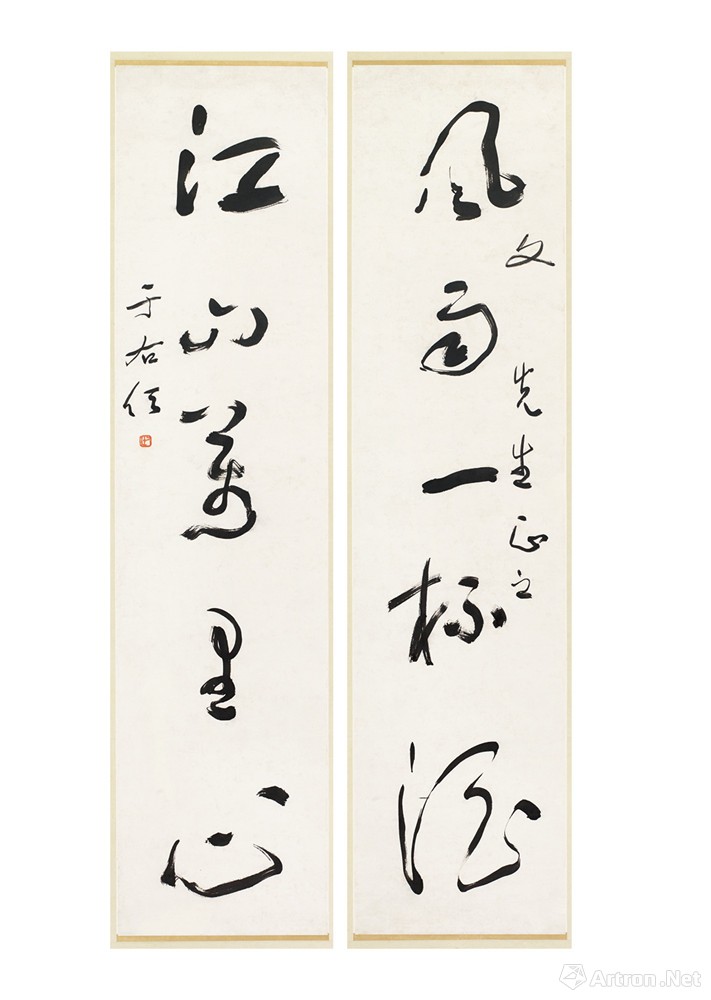 風雨一杯酒
文 先生正之
江山萬里心
于右任
Artron.Net